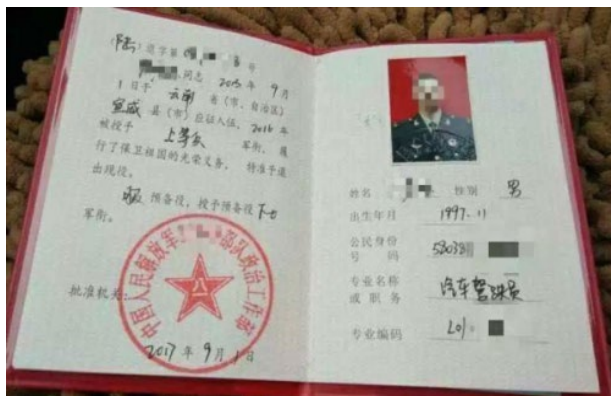 退字第 号
同志 2015 年 9 月
1 日于 云南 省（市、自治区）
宣威 县（市）应征入伍，2016 年
被授予 上等兵 军衔，履
行了保卫祖国的光荣义务，特准予退
出现役。
服 预备役，授予预备役 下士
军衔。
中国人民解放军 部队政治工作部
八一
批准机关：
2017 年 9 月 1 日
姓名 性别 男
出生年月 1997.11
公民身份
号码
专业名称 汽车驾驶员
或职务
专业编码 201